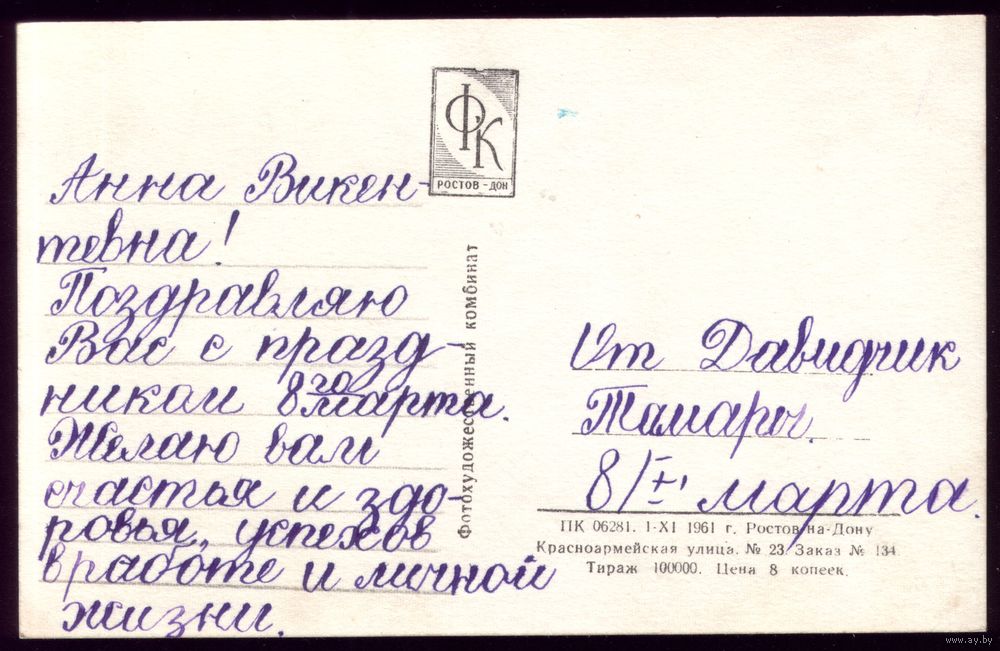 ФК
РОСТОВ-ДОН
Анна Викен-
тевна!
Поздравляю
Вас с празд-
ником 8го марта.
Желаю вам
счастья и здо-
ровья, успехов
в работе и личной
жизни.
Фотохудожественный комбинат
От Давидчик
Тамары.
8/III марта.
ПК 06281. 1-XI 1961 г. Ростов-на-Дону
Красноармейская улица. № 23 Заказ № 134
Тираж 100000. Цена 8 копеек.
www.ay.by